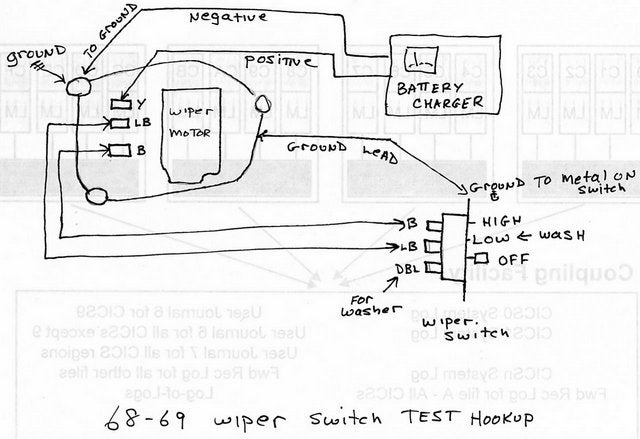 NEGATIVE
TO GROUND
GROUND
POSITIVE
BATTERY
CHARGER
Y
LB
B
WIPER
MOTOR
GROUND LEAD
GROUND TO METAL ON
SWITCH
B
LB
DBL
HIGH
LOW ← WASH
OFF
FOR
WASHER
WIPER.
SWITCH
68-69 WIPER SWITCH TEST HOOKUP
Coupling Facility
CICS0 System Log
CICSn System Log
Fwd Rec Log for file A - All CICSs
User Journal 6 for CICS9
User Journal 6 for all CICSs except 9
User Journal 7 for all CICS regions
Fwd Rec Log for all other files
Log-of-Logs